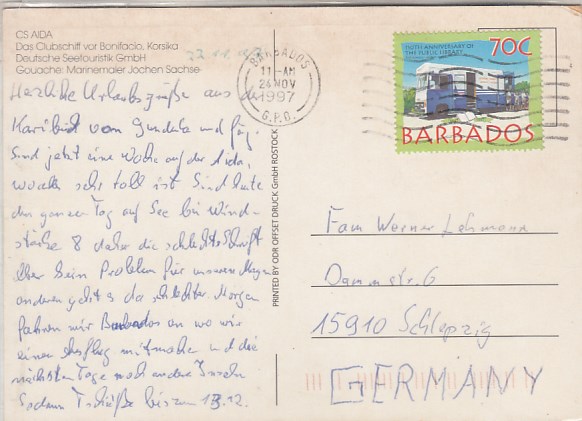 CS AIDA
Das Clubschiff vor Bonifacio, Korsika
Deutsche Seetouristik GmbH
Gouache: Marinemaler Jochen Sachse
Herzliche Urlaubsgrüße aus der
Karibik von Gundula und
Sind jetzt eine Woche auf der Aida,
welche sehr toll ist Sind heute
den ganzen Tag auf See bei Wind-
stärke 8 daher die schlechte Schrift
Aber kein Problem für unseren Magen
anderen geht es da schlechter Morgen
fahren wir Barbados an wo wir
einen Ausflug mitmachen und die
nächsten Tage noch andere Inseln
Tschüße bis zum 13.12.
PRINTED BY ODR OFFSET DRUCK GmbH ROSTOCK
BARBADOS
11-AM
24 NOV
1997
G.P.O.
150TH ANNIVERSARY OF
THE PUBLIC LIBRARY
70C
BARBADOS
Fam Werner Lehmann
Damm str. 6
15910 Schlepzig
GERMANY